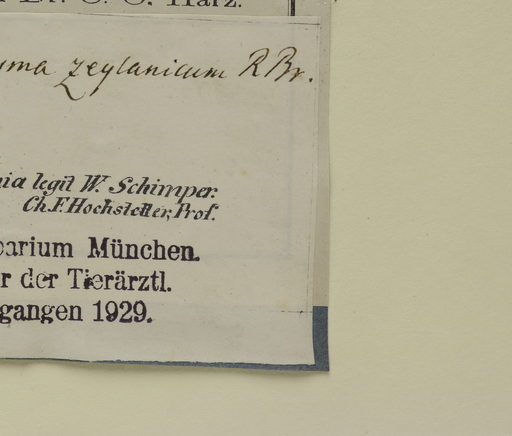 C. O. Harz.
uma zeylanicum R Br.
nia legit W. Schimper.
Ch. F. Hochstetter, Prof.
barium München.
r der Tierärztl.
gangen 1929.